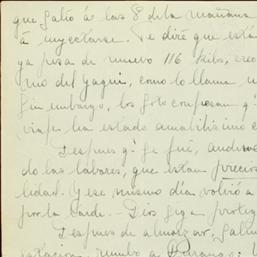 que salió á las 8 de la mañana
á inyectarse. Te diré que está
ya pesa de nuevo 116 kilos, creo
río del Yaqui, como lo llama
Sin embargo, los dos componen q.
viaje ha estado amabilísimo
Despues q. se fué, anduv
do las labores, que están precios
lidad. Y ese mismo día volvió a
por la tarde.- Dios siga proteg
Despues de almorzar, salim
estacion, rumbo a Durango: